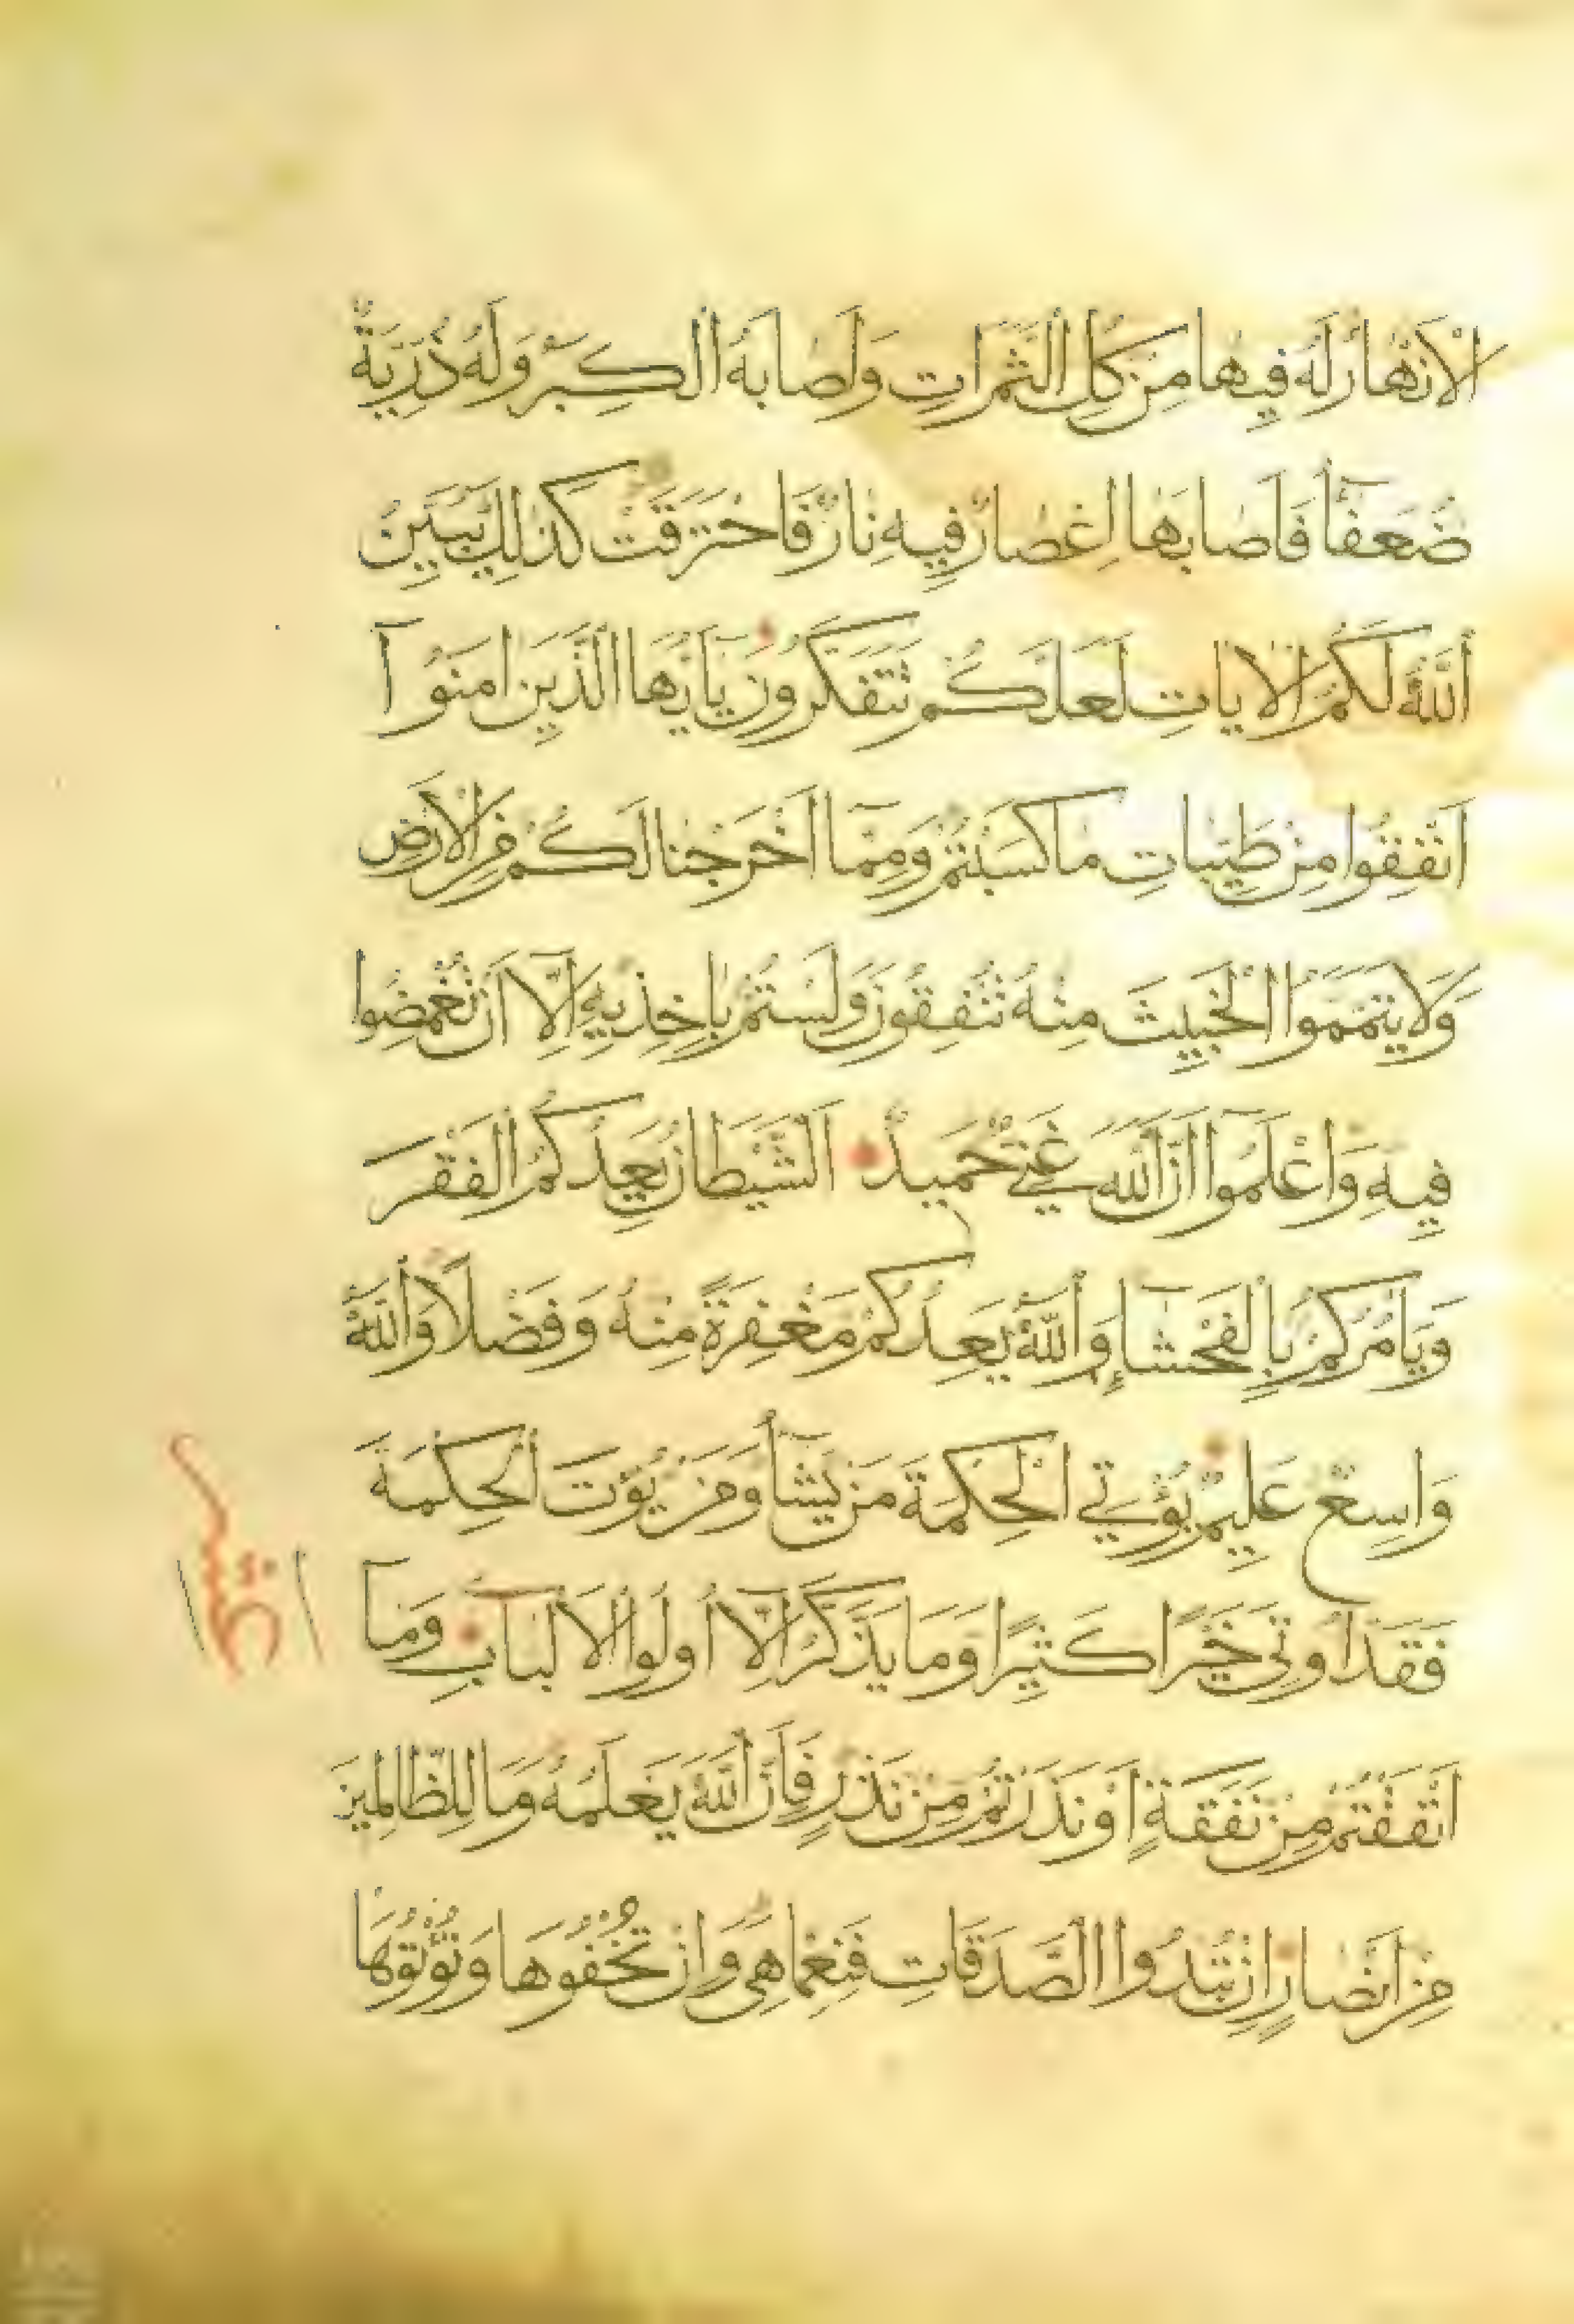 الْاَنْهَارُ لَهُ فِيهَا مِنْ كُلِّ الثَّمَرَاتِ وَاَصَابَهُ الْكِبَرُ وَلَهُ ذُرِّيَّةٌ
ضُعَفَآءُ فَاَصَابَهَا اِعْصَارٌ فِيهِ نَارٌ فَاحْتَرَقَتْ كَذٰلِكَ يُبَيِّنُ
اللّٰهُ لَكُمُ الْاٰيَاتِ لَعَلَّكُمْ تَتَفَكَّرُونَ يَآ اَيُّهَا الَّذِينَ اٰمَنُوآ
اَنْفِقُوا مِنْ طَيِّبَاتِ مَا كَسَبْتُمْ وَمِمَّآ اَخْرَجْنَا لَكُمْ مِنَ الْاَرْضِ
وَلَا تَيَمَّمُوا الْخَبِيثَ مِنْهُ تُنْفِقُونَ وَلَسْتُمْ بِاٰخِذِيهِ اِلَّآ اَنْ تُغْمِضُوا
فِيهِ وَاعْلَمُوآ اَنَّ اللّٰهَ غَنِيٌّ حَمِيدٌ اَلشَّيْطَانُ يَعِدُكُمُ الْفَقْرَ
وَيَاْمُرُكُمْ بِالْفَحْشَآءِ وَاللّٰهُ يَعِدُكُمْ مَغْفِرَةً مِنْهُ وَفَضْلًا وَاللّٰهُ
وَاسِعٌ عَلِيمٌ يُؤْتِي الْحِكْمَةَ مَنْ يَشَآءُ وَمَنْ يُؤْتَ الْحِكْمَةَ
فَقَدْ اُوتِيَ خَيْرًا كَثِيرًا وَمَا يَذَّكَّرُ اِلَّآ اُولُوا الْاَلْبَابِ وَمَآ
اَنْفَقْتُمْ مِنْ نَفَقَةٍ اَوْ نَذَرْتُمْ مِنْ نَذْرٍ فَاِنَّ اللّٰهَ يَعْلَمُهُ وَمَا لِلظَّالِمِينَ
مِنْ اَنْصَارٍ اِنْ تُبْدُوا الصَّدَقَاتِ فَنِعِمَّا هِيَ وَاِنْ تُخْفُوهَا وَتُؤْتُوهَا